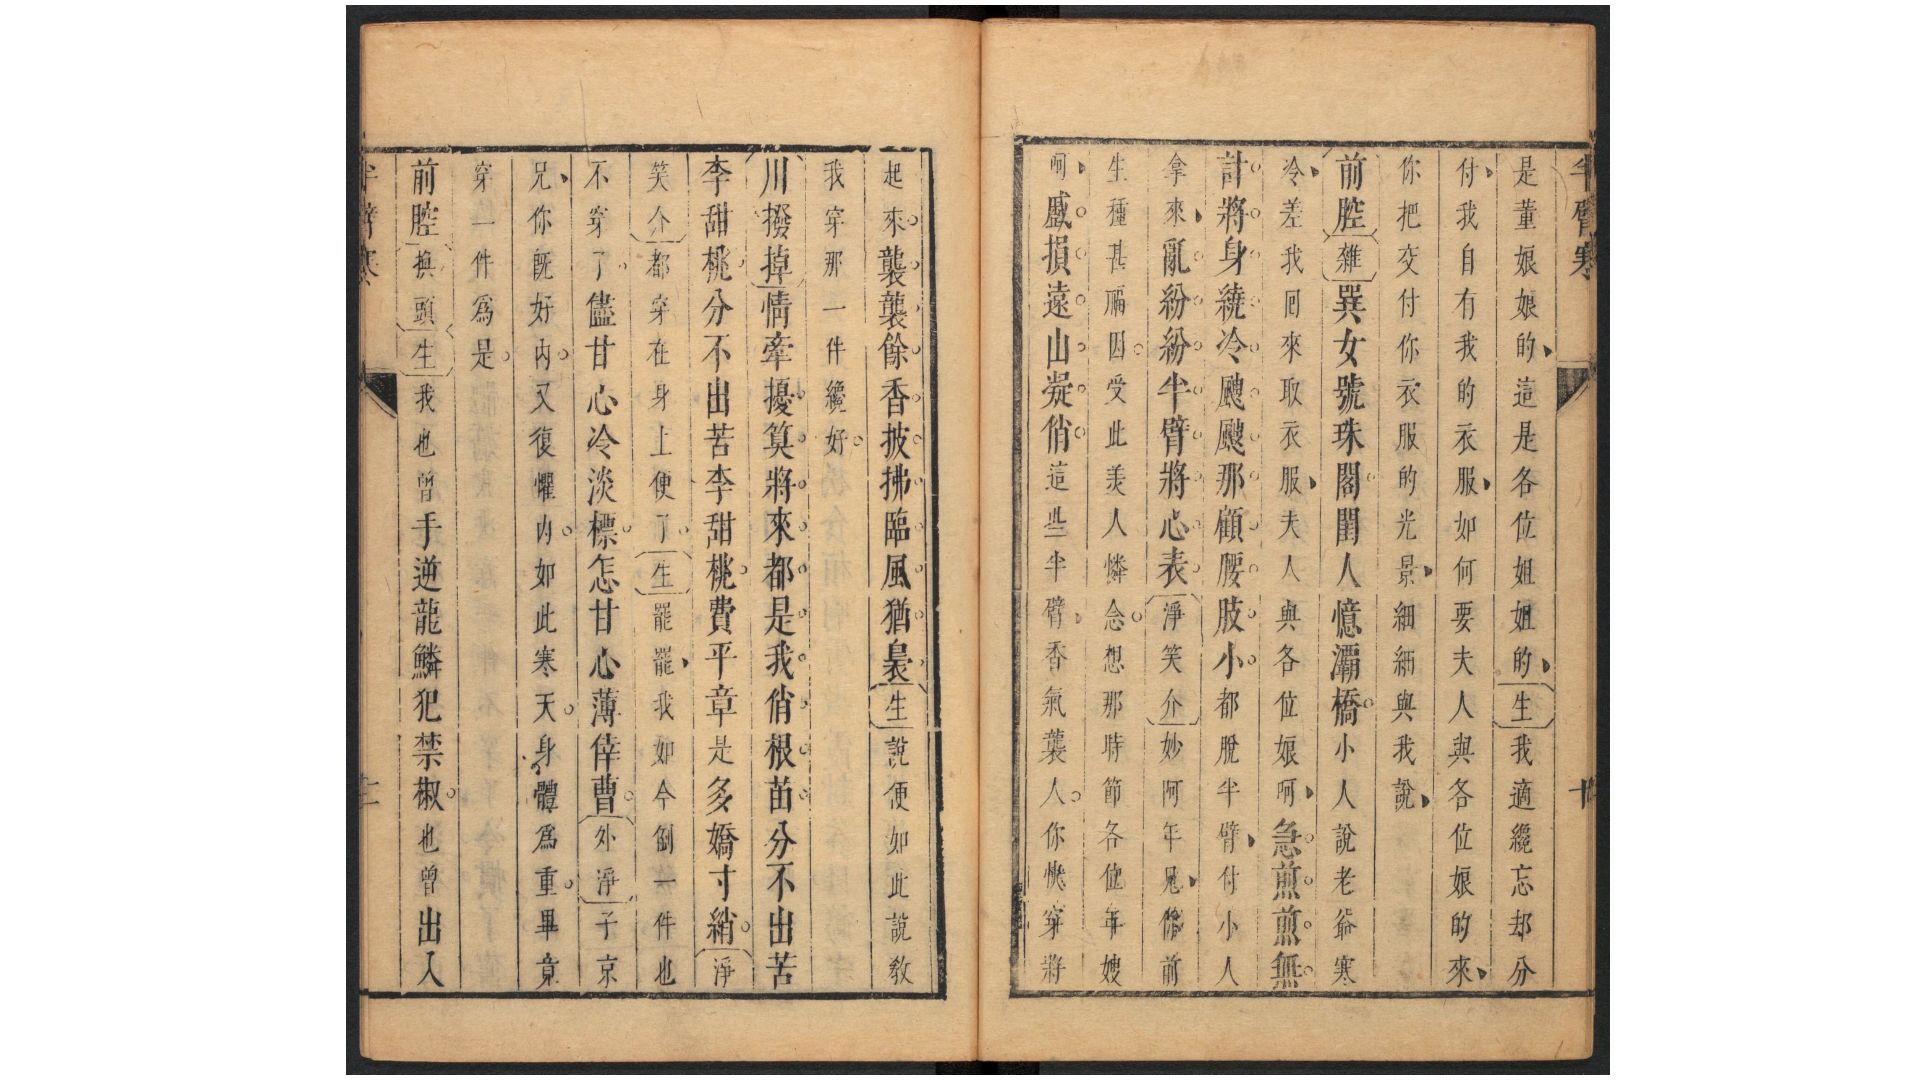 半臂寒
十
是董娘娘的這是各位姐姐的生我適纔忘却分
付我自有我的衣服如何要夫人與各位娘的來
你把交付你衣服的光景細細與我說
前腔雜巽女號珠閣閨人憶灞橋小人說老爺寒
冷差我回來取衣服夫人與各位娘呵急煎煎無
計將身繞冷颼颼那顧腰肢小都脫半臂付小人
拿來亂紛紛半臂將心表淨笑介妙阿年兄你前
生種甚福因受此羙人憐念想那時節各位年嫂
呵蹙損遠山凝俏這些半臂香氣襲人你快穿將
起來襲襲餘香披拂臨風猶裊生說便如此說教
我穿那一件纔好
川撥掉情牽擾筭將來都是我俏根苗分不出苦
李甜桃分不出苦李甜桃費平章是多嬌寸綃淨
笑介都穿在身上便了生罷罷我如今倒一件也
不穿了儘甘心冷淡標怎甘心薄倖曹外淨子京
兄你旣好內又復懼內如此寒天身體爲重畢竟
穿一件爲是
前腔換頭生我也曾手逆龍鱗犯禁椒也曾出入
半臂寒